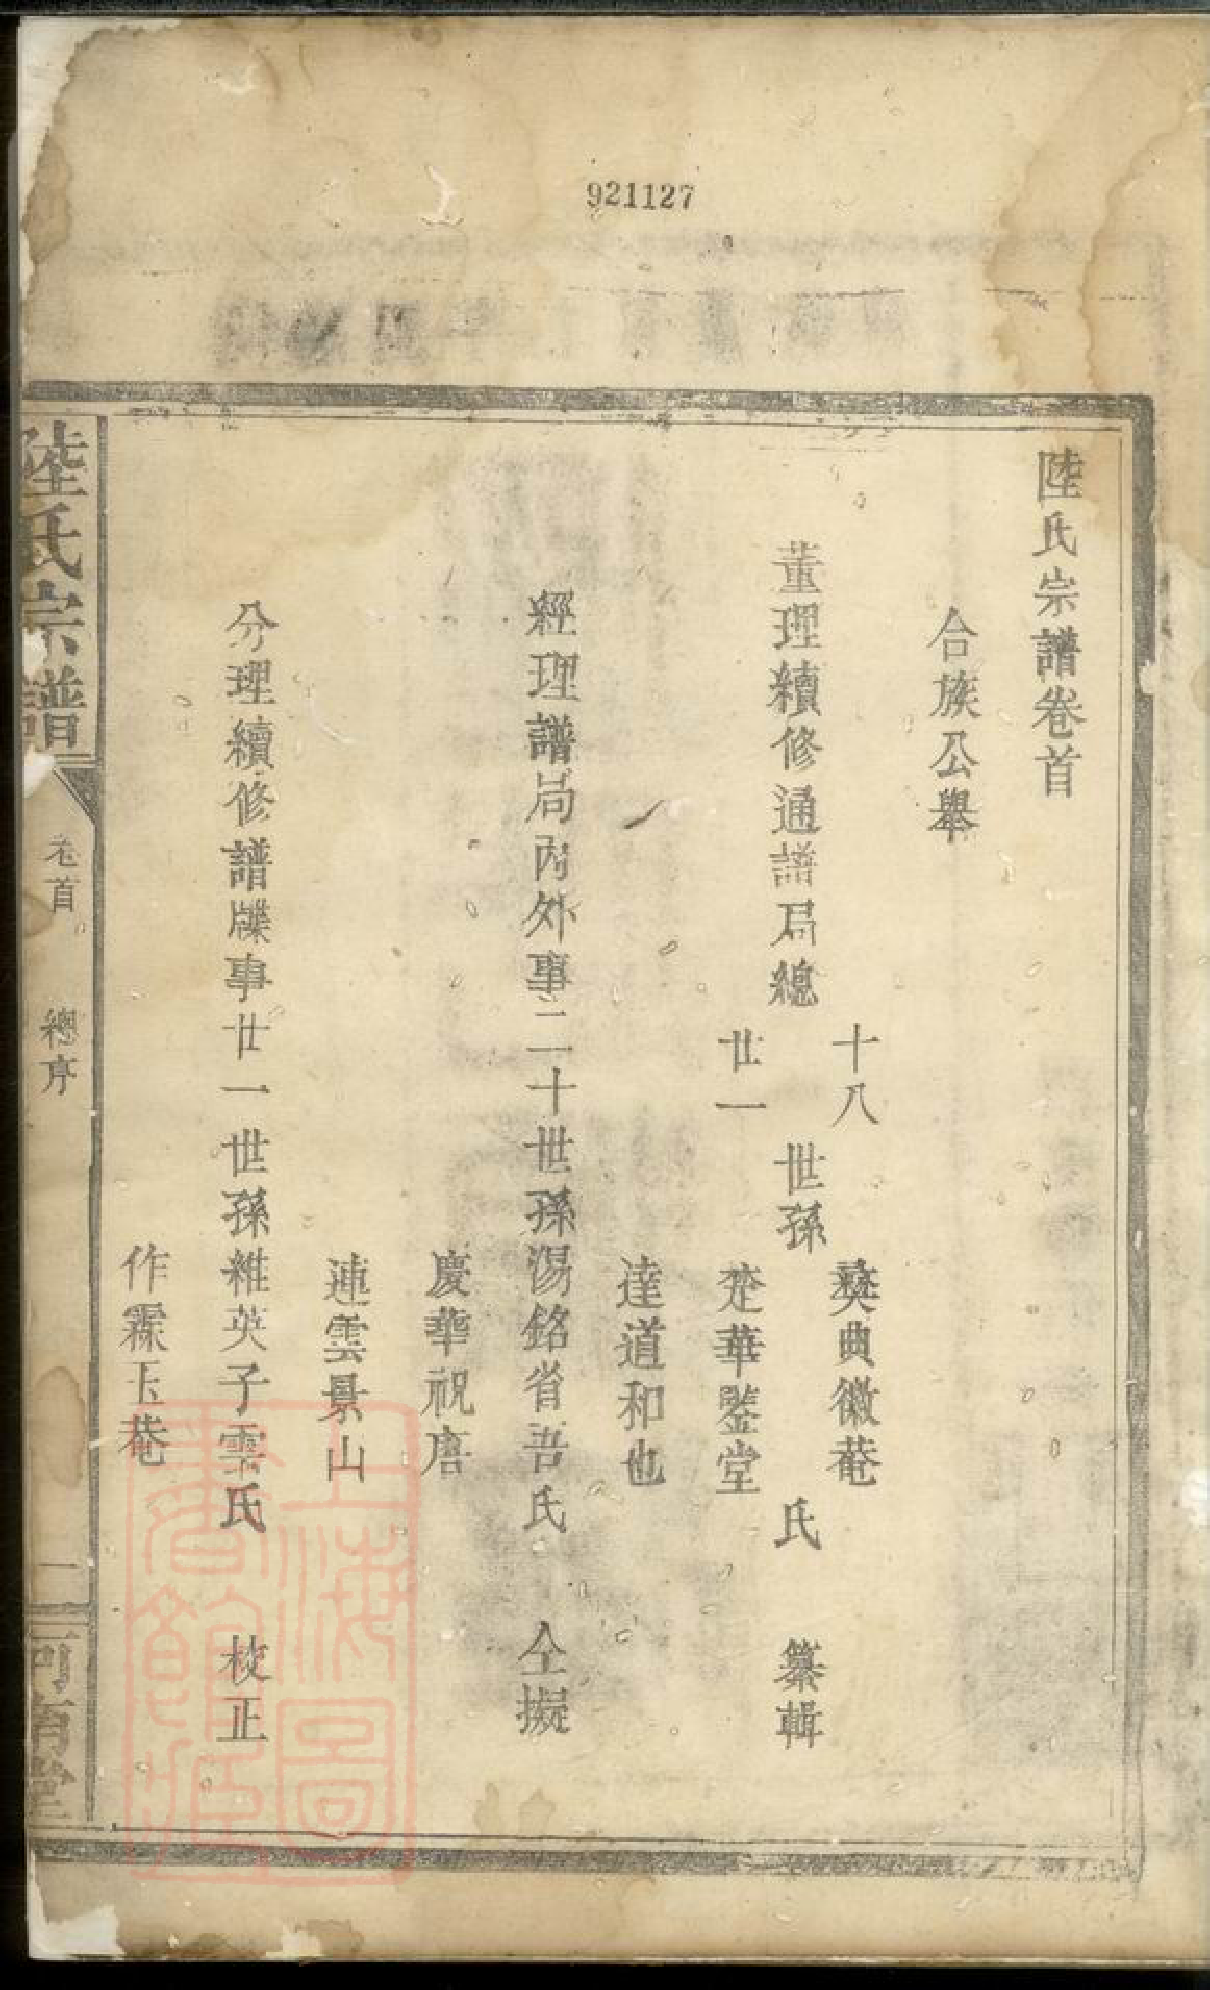 921127
陸氏宗譜卷首
合族公舉
董理續修通譜局總
十八
廿一
世孫
彝典徽菴
楚華鑒堂
氏
纂輯
達道和也
經理譜局內外事二十世孫湯銘省吾氏 仝擬
慶華祝唐
連雲景山
分理續修譜牒事廿一世孫維英子雲氏 校正
作霖玉菴
陸氏宗譜
卷首
總序
上海圖書館藏